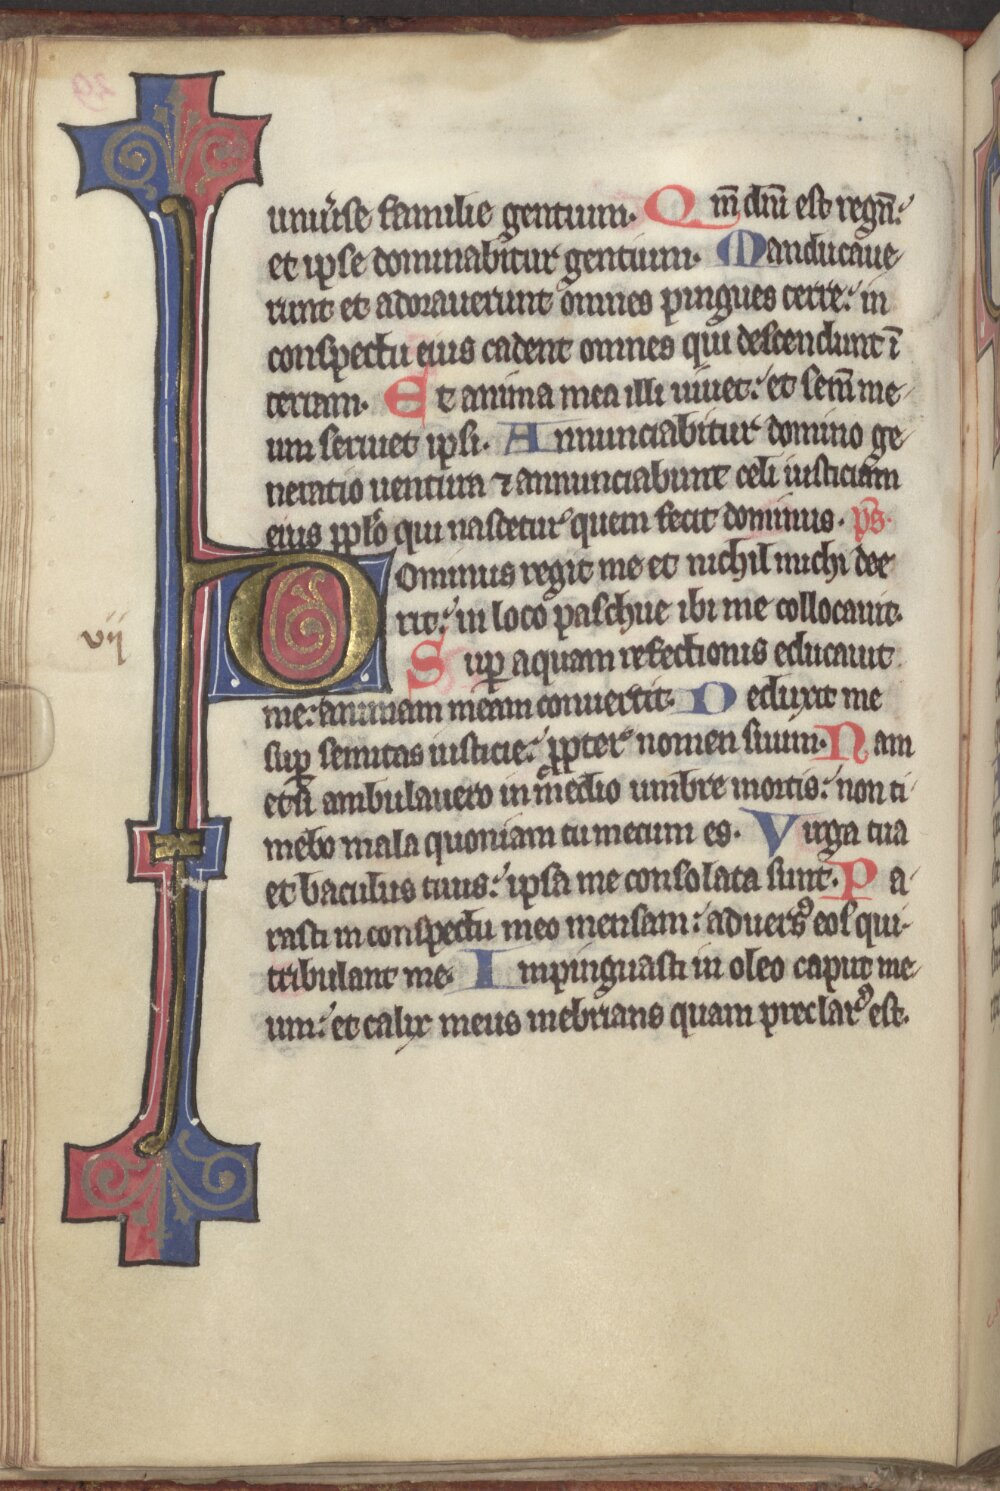 uniuͥse familie gentium. Qm̄ dn̄i est regn̄:
et ipse dominabitur gentium. Manducaue
runt et adorauerunt omnes pingues terre: in
conspectu eius cadent omnes qui descendunt ī
terram. Et anima mea illi uiuet: et sem̄ me
um seruiet ipsi. Annunciabitur domino ge
neratio uentura ⁊ annunciabunt celi iusticiam
eius pplo qui nascetur quem fecit dominus. ps̄.
Dominus regit me et nichil michi dee
rit: in loco paschue ibi me collocauit.
Suꝑ aquam refectionis educauit
me: animam meam conuertit. Deduxit me
suꝑ semitas iusticie: ꝓpter nomen suum. Nam
etsi ambulauero in medio umbre mortis: non ti
mebo mala quoniam tu mecum es. Virga tua
et baculus tuus: ipsa me consolata sunt. Pa
rasti in conspectu meo mensam: aduersꝰ eos qui
tribulant me. Impinguasti in oleo caput me
um: et calix meus inebrians quam preclarꝰ est.
vij